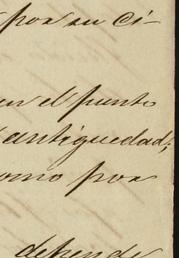 por su ci-
en el punto
antiguedad,
como por
depende